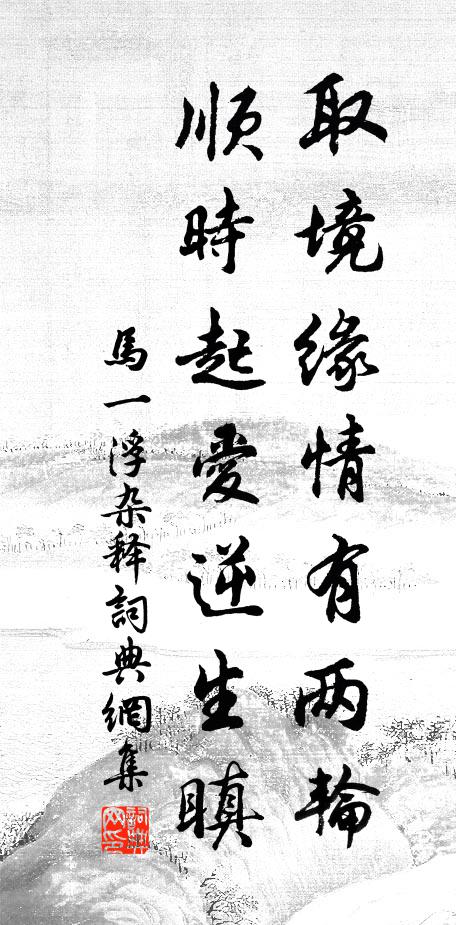 取境緣情有两輪
順時起愛逆生瞋
馬一浮杂释詞典網集